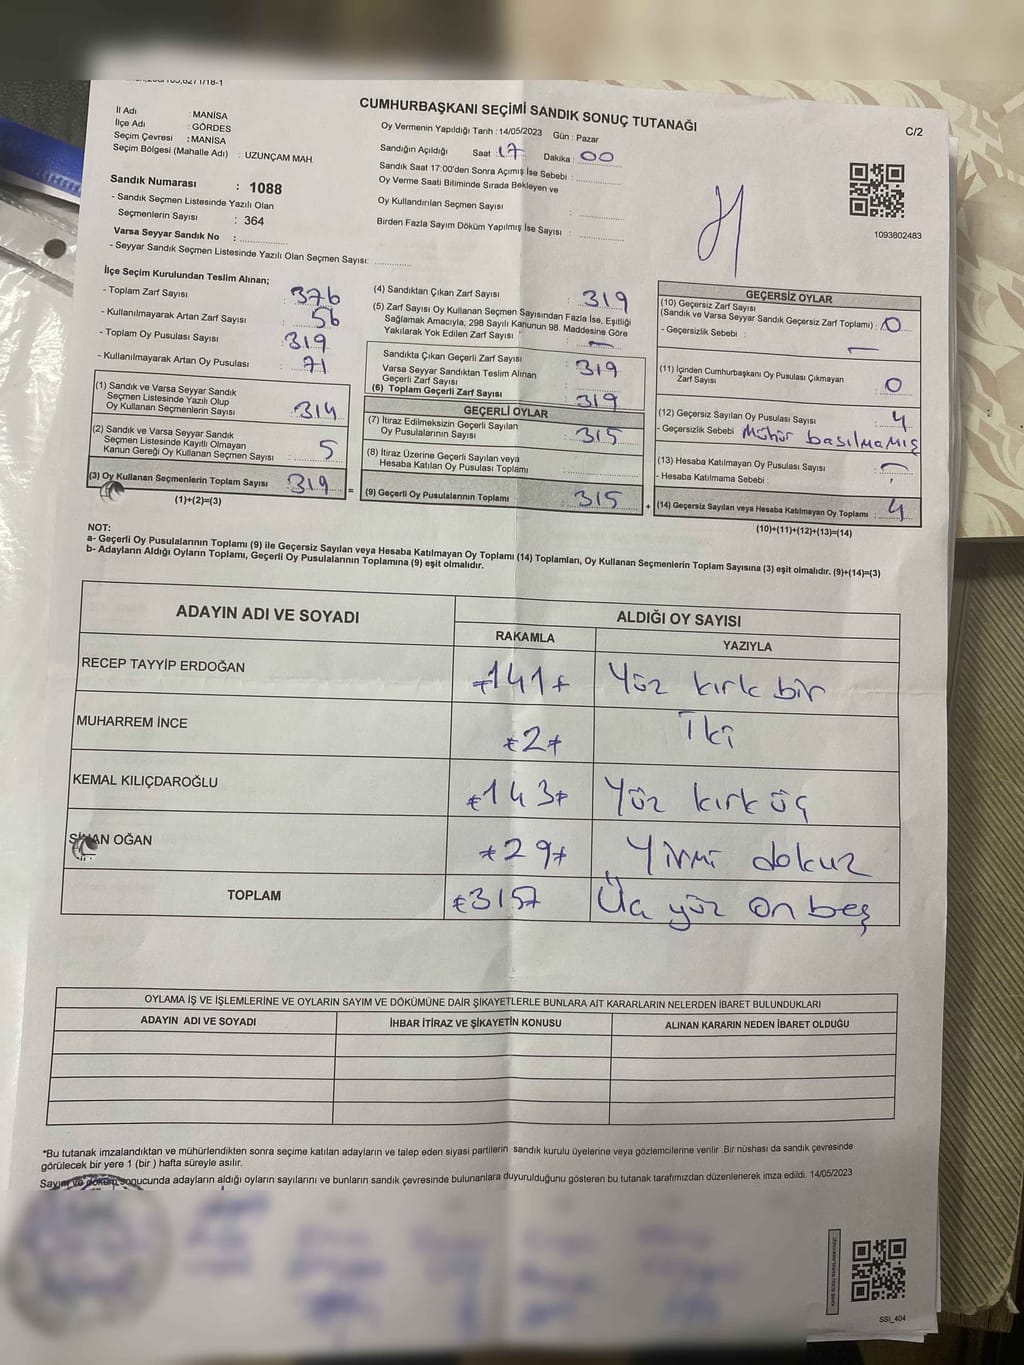 CUMHURBAŞKANI SEÇİMİ SANDIK SONUÇ TUTANAĞI
C/2
İl Adı : MANİSA
İlçe Adı : GÖRDES
Seçim Çevresi : MANİSA
Seçim Bölgesi (Mahalle Adı) : UZUNÇAM MAH.
Sandık Numarası : 1088
- Sandık Seçmen Listesinde Yazılı Olan
Seçmenlerin Sayısı : 364
Varsa Seyyar Sandık No :
- Seyyar Sandık Seçmen Listesinde Yazılı Olan Seçmen Sayısı:
Oy Vermenin Yapıldığı Tarih : 14/05/2023 Gün : Pazar
Sandığın Açıldığı Saat 17 Dakika : 00
Sandık Saat 17:00'den Sonra Açımış İse Sebebi :
Oy Verme Saati Bitiminde Sırada Bekleyen ve
Oy Kullandırılan Seçmen Sayısı :
Birden Fazla Sayım Döküm Yapılmış İse Sayısı :
1093802483
İlçe Seçim Kurulundan Teslim Alınan;
- Toplam Zarf Sayısı : 376
- Kullanılmayarak Artan Zarf Sayısı : 56
- Toplam Oy Pusulası Sayısı : 319
- Kullanılmayarak Artan Oy Pusulası : 71
(1) Sandık ve Varsa Seyyar Sandık
Seçmen Listesinde Yazılı Olup
Oy Kullanan Seçmenlerin Sayısı : 314
(2) Sandık ve Varsa Seyyar Sandık
Seçmen Listesinde Kayıtlı Olmayan
Kanun Gereği Oy Kullanan Seçmen Sayısı : 5
(3) Oy Kullanan Seçmenlerin Toplam Sayısı : 319 =
(1)+(2)=(3)
(4) Sandıktan Çıkan Zarf Sayısı : 319
(5) Zarf Sayısı Oy Kullanan Seçmen Sayısından Fazla İse, Eşitliği
Sağlamak Amacıyla; 298 Sayılı Kanunun 98. Maddesine Göre
Yakılarak Yok Edilen Zarf Sayısı : —
Sandıkta Çıkan Geçerli Zarf Sayısı : 319
Varsa Seyyar Sandıktan Teslim Alınan
Geçerli Zarf Sayısı :
(6) Toplam Geçerli Zarf Sayısı : 319
GEÇERLİ OYLAR
(7) İtiraz Edilmeksizin Geçerli Sayılan
Oy Pusulalarının Sayısı : 315
(8) İtiraz Üzerine Geçerli Sayılan veya
Hesaba Katılan Oy Pusulası Toplamı :
(9) Geçerli Oy Pusulalarının Toplamı : 315 +
GEÇERSİZ OYLAR
(10) Geçersiz Zarf Sayısı
(Sandık ve Varsa Seyyar Sandık Geçersiz Zarf Toplamı) : 0
- Geçersizlik Sebebi : —
(11) İçinden Cumhurbaşkanı Oy Pusulası Çıkmayan
Zarf Sayısı : 0
(12) Geçersiz Sayılan Oy Pusulası Sayısı : 4
- Geçersizlik Sebebi : Mühür basılmamış
(13) Hesaba Katılmayan Oy Pusulası Sayısı : —
- Hesaba Katılmama Sebebi :
(14) Geçersiz Sayılan veya Hesaba Katılmayan Oy Toplamı : 4
(10)+(11)+(12)+(13)=(14)
NOT:
a- Geçerli Oy Pusulalarının Toplamı (9) ile Geçersiz Sayılan veya Hesaba Katılmayan Oy Toplamı (14) Toplamları, Oy Kullanan Seçmenlerin Toplam Sayısına (3) eşit olmalıdır. (9)+(14)=(3)
b- Adayların Aldığı Oyların Toplamı, Geçerli Oy Pusulalarının Toplamına (9) eşit olmalıdır.
ADAYIN ADI VE SOYADI ALDIĞI OY SAYISI
RAKAMLA YAZIYLA
RECEP TAYYİP ERDOĞAN 141 Yüz kırk bir
MUHARREM İNCE 2 İki
KEMAL KILIÇDAROĞLU 143 Yüz kırk üç
SİNAN OĞAN 29 Yirmi dokuz
TOPLAM 315 Üç yüz on beş
OYLAMA İŞ VE İŞLEMLERİNE VE OYLARIN SAYIM VE DÖKÜMÜNE DAİR ŞİKAYETLERLE BUNLARA AİT KARARLARIN NELERDEN İBARET BULUNDUKLARI
ADAYIN ADI VE SOYADI İHBAR İTİRAZ VE ŞİKAYETİN KONUSU ALINAN KARARIN NEDEN İBARET OLDUĞU
*Bu tutanak imzalandıktan ve mühürlendikten sonra seçime katılan adayların ve talep eden siyasi partilerin sandık kurulu üyelerine veya gözlemcilerine verilir .Bir nüshası da sandık çevresinde
görülecek bir yere 1 (bir ) hafta süreyle asılır.
Sayım ve döküm sonucunda adayların aldığı oyların sayılarını ve bunların sandık çevresinde bulunanlara duyurulduğunu gösteren bu tutanak tarafımızdan düzenlenerek imza edildi. 14/05/2023
SSI_404